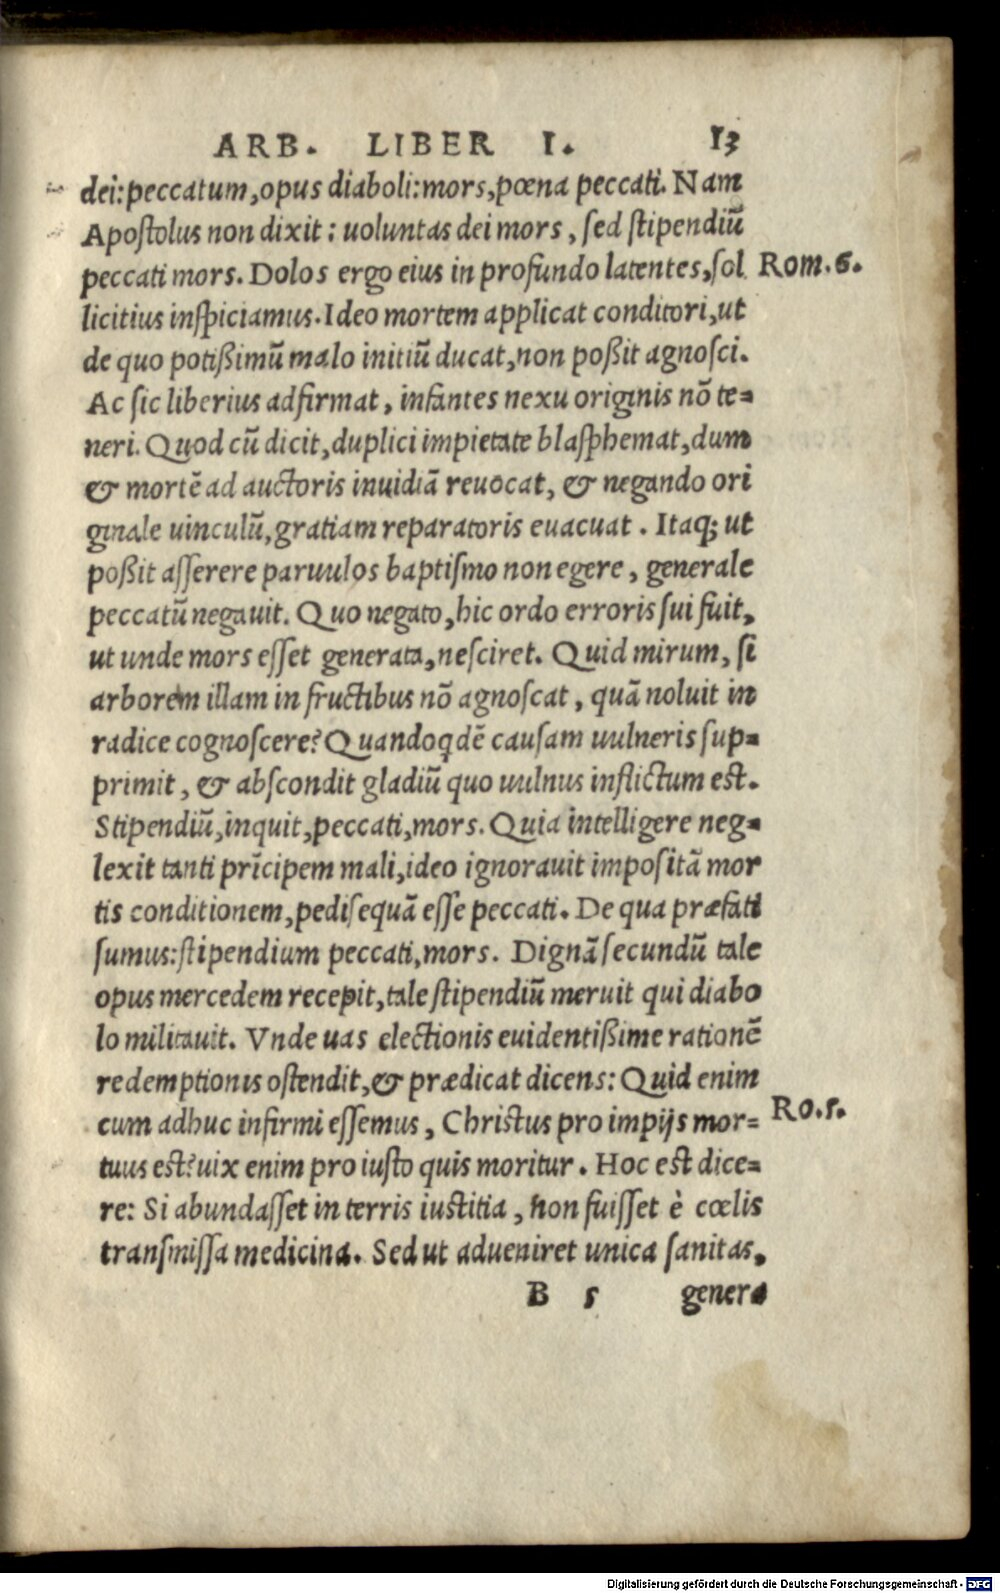 ARB. LIBER I. 13
dei: peccatum, opus diaboli: mors, pœna peccati. Nam
Apostolus non dixit: uoluntas dei mors, sed stipendiū
peccati mors. Dolos ergo eius in profundo latentes, sol Rom. 6.
licitius inspiciamus. Ideo mortem applicat conditori, ut
de quo potißimū malo initiū ducat, non poßit agnosci.
Ac sic liberius adfirmat, infantes nexu originis nō te=
neri. Quod cū dicit, duplici impietate blasphemat, dum
& mortē ad auctoris inuidiā reuocat, & negando ori
ginale uinculū, gratiam reparatoris euacuat. Itaq; ut
poßit asserere paruulos baptismo non egere, generale
peccatū negauit. Quo negato, hic ordo erroris sui fuit,
ut unde mors esset generata, nesciret. Quid mirum, si
arborem illam in fructibus nō agnoscat, quā noluit in
radice cognoscere? Quandoqdē causam uulneris sup=
primit, & abscondit gladiū quo uulnus inflictum est.
Stipendiū, inquit, peccati, mors. Quia intelligere neg=
lexit tanti prīcipem mali, ideo ignorauit impositā mor
tis conditionem, pedisequā esse peccati. De qua præfati
sumus: stipendium peccati, mors. Dignā secundū tale
opus mercedem recepit, tale stipendiū meruit qui diabo
lo militauit. Vnde uas electionis euidentißime rationē
redemptionis ostendit, & prædicat dicens: Quid enim
cum adhuc infirmi essemus, Christus pro impijs mor= Ro. 5.
tuus est? uix enim pro iusto quis moritur. Hoc est dice=
re: Si abundasset in terris iustitia, non fuisset è cœlis
transmissa medicina. Sed ut adueniret unica sanitas,
B 5 genera
Digitalisierung gefördert durch die Deutsche Forschungsgemeinschaft - DFG